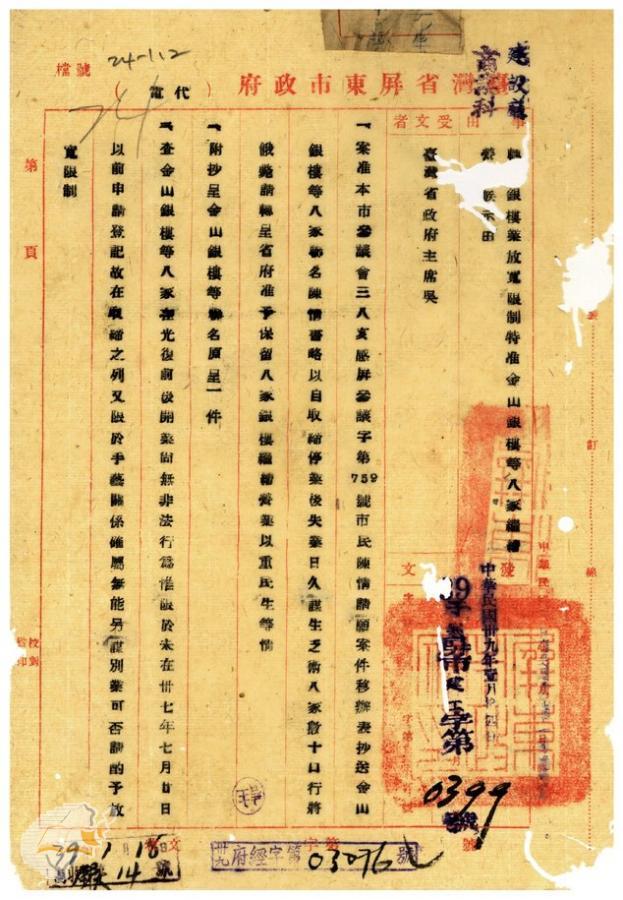 檔號
24-1.12
臺灣省屏東市政府(代電)
建設廳
商業科
事由
受文者
銀樓業放寬限制特准金山銀樓等八家繼續
營業示由
臺灣省政府主席吳
發文
中華民國卅九年壹月
39
字第
0399
號
一案准本市參議會三八亥感屏參議字第759號市民陳情請願案件移辦表抄送金山
銀樓等八家聯名陳情書略以自取締停業後失業日久謀生乏術八家數十口行將
餓斃請轉呈省府准予保留八家銀樓繼續營業以重民生等情
一附抄呈金山銀樓等聯名原呈一件
一查金山銀樓等八家在光復前後開業尚無非法行為惟限於未在卅七年七月廿日
以前申請登記故在取締之列又限於手藝關係確屬無能另謀別業可否請酌予放
寬限制
第 頁
裝
訂
線
校對
39 1 16
卅九府經字第03076號